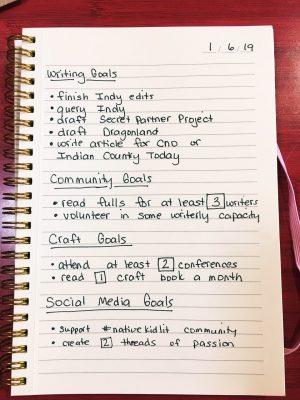 1/6/19
Writing Goals
• finish Indy edits
• query Indy
• draft Secret Partner Project
• draft Dragonland
• write article for CNO or
Indian Country Today
Community Goals
• read fulls for at least 3 writers
• volunteer in some writerly capacity
Craft Goals
• attend at least 2 conferences
• read 1 craft book a month
Social Media Goals
• support #nativekidlit community
• create 2 threads of passion